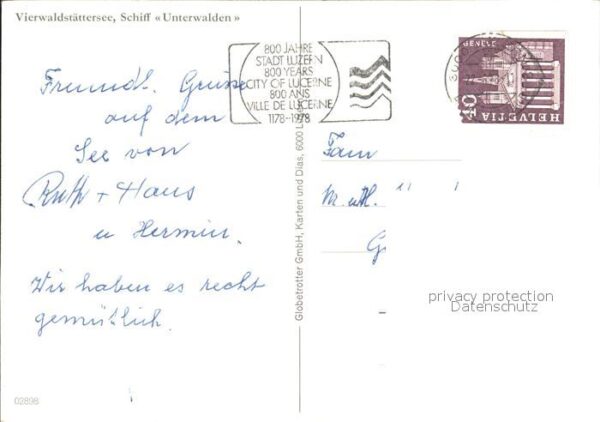 Vierwaldstättersee, Schiff «Unterwalden»
Freundl. Grüsse
auf dem
See von
Ruth + Hans
u Hermin.
Wir haben es recht
gemütlich.
02898
Globetrotter GmbH, Karten und Dias, 6000
800 JAHRE
STADT LUZERN
800 YEARS
CITY OF LUCERNE
800 ANS
VILLE DE LUCERNE
1178-1978
GENEVE
40
HELVETIA
Fam
G
privacy protection
Datenschutz